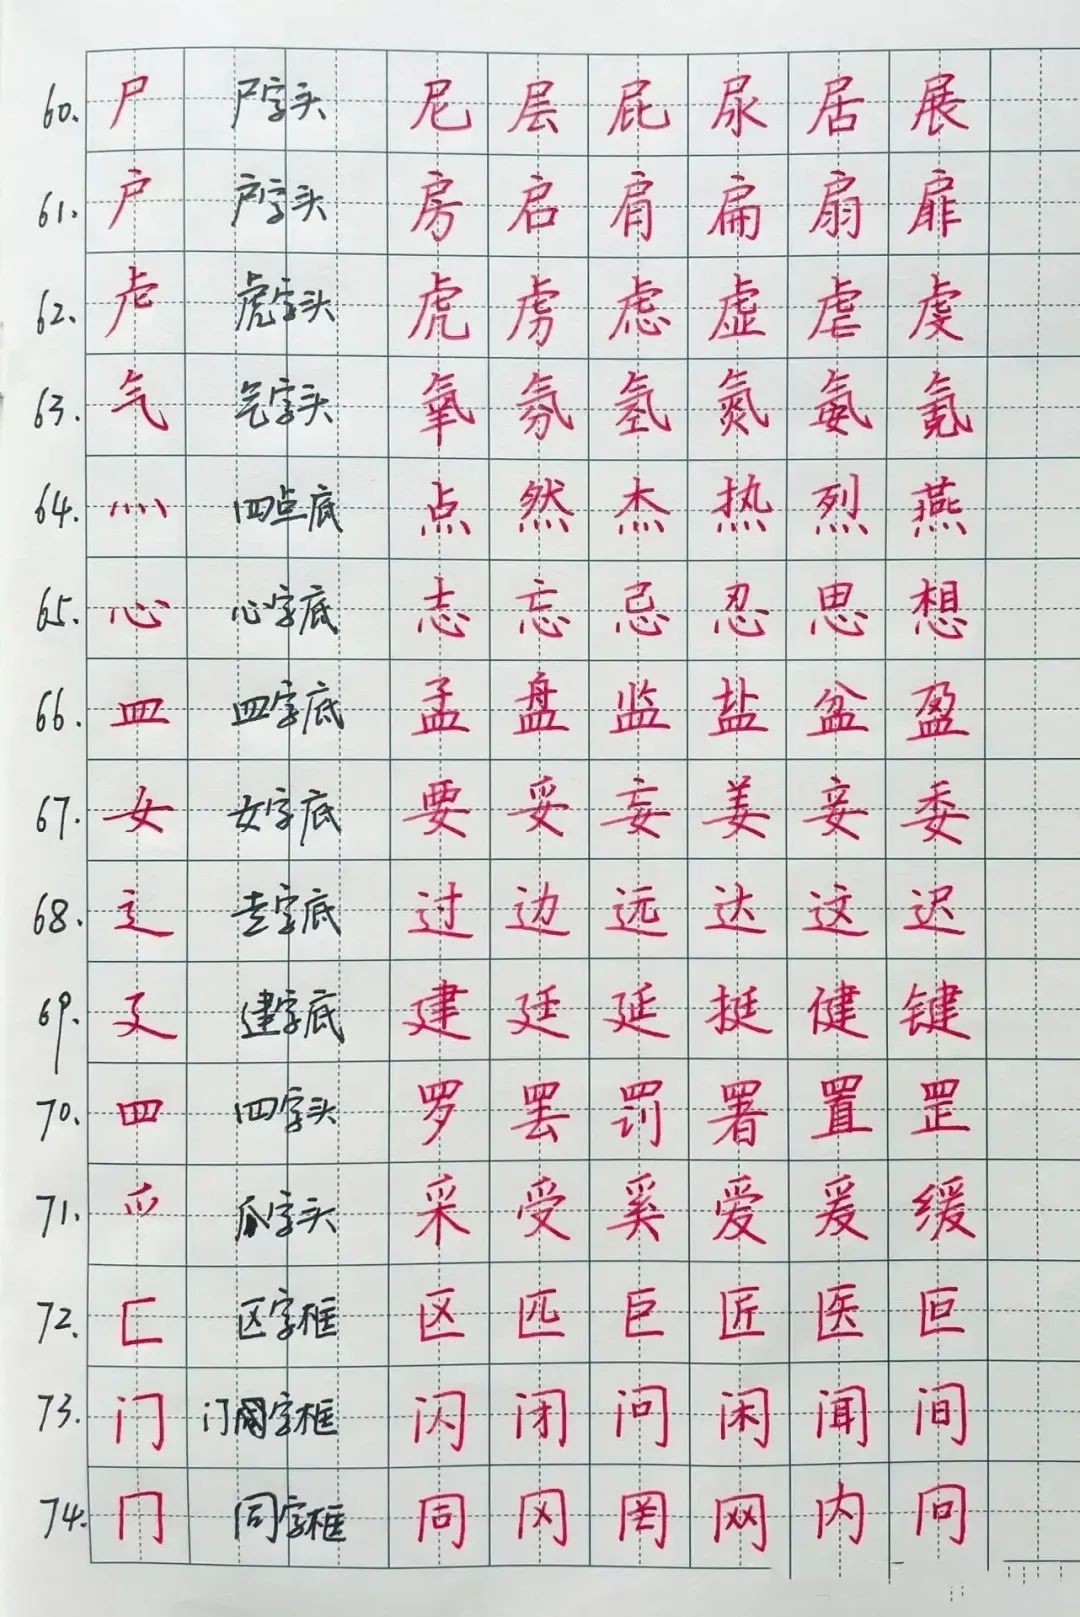 60. 尸 尸字头 尼 层 屁 尿 居 展
61. 户 户字头 房 启 肩 扁 扇 扉
62. 虍 虎字头 虎 虏 虑 虚 虐 虔
63. 气 气字头 氧 氛 氢 氮 氨 氪
64. 灬 四点底 点 然 杰 热 烈 燕
65. 心 心字底 志 忘 忌 忍 思 想
66. 皿 皿字底 孟 盘 监 盐 盆 盈
67. 女 女字底 要 妥 妄 姜 妾 委
68. 辶 走字底 过 边 远 达 这 迟
69. 廴 建字底 建 廷 延 挺 健 键
70. 罒 四字头 罗 罢 罚 署 置 罡
71. 爫 爪字头 采 受 奚 爱 爰 缓
72. 匚 区字框 区 匹 巨 匠 医 叵
73. 门 门字框 闪 闭 问 闲 闻 间
74. 冂 同字框 周 冈 网 内 同